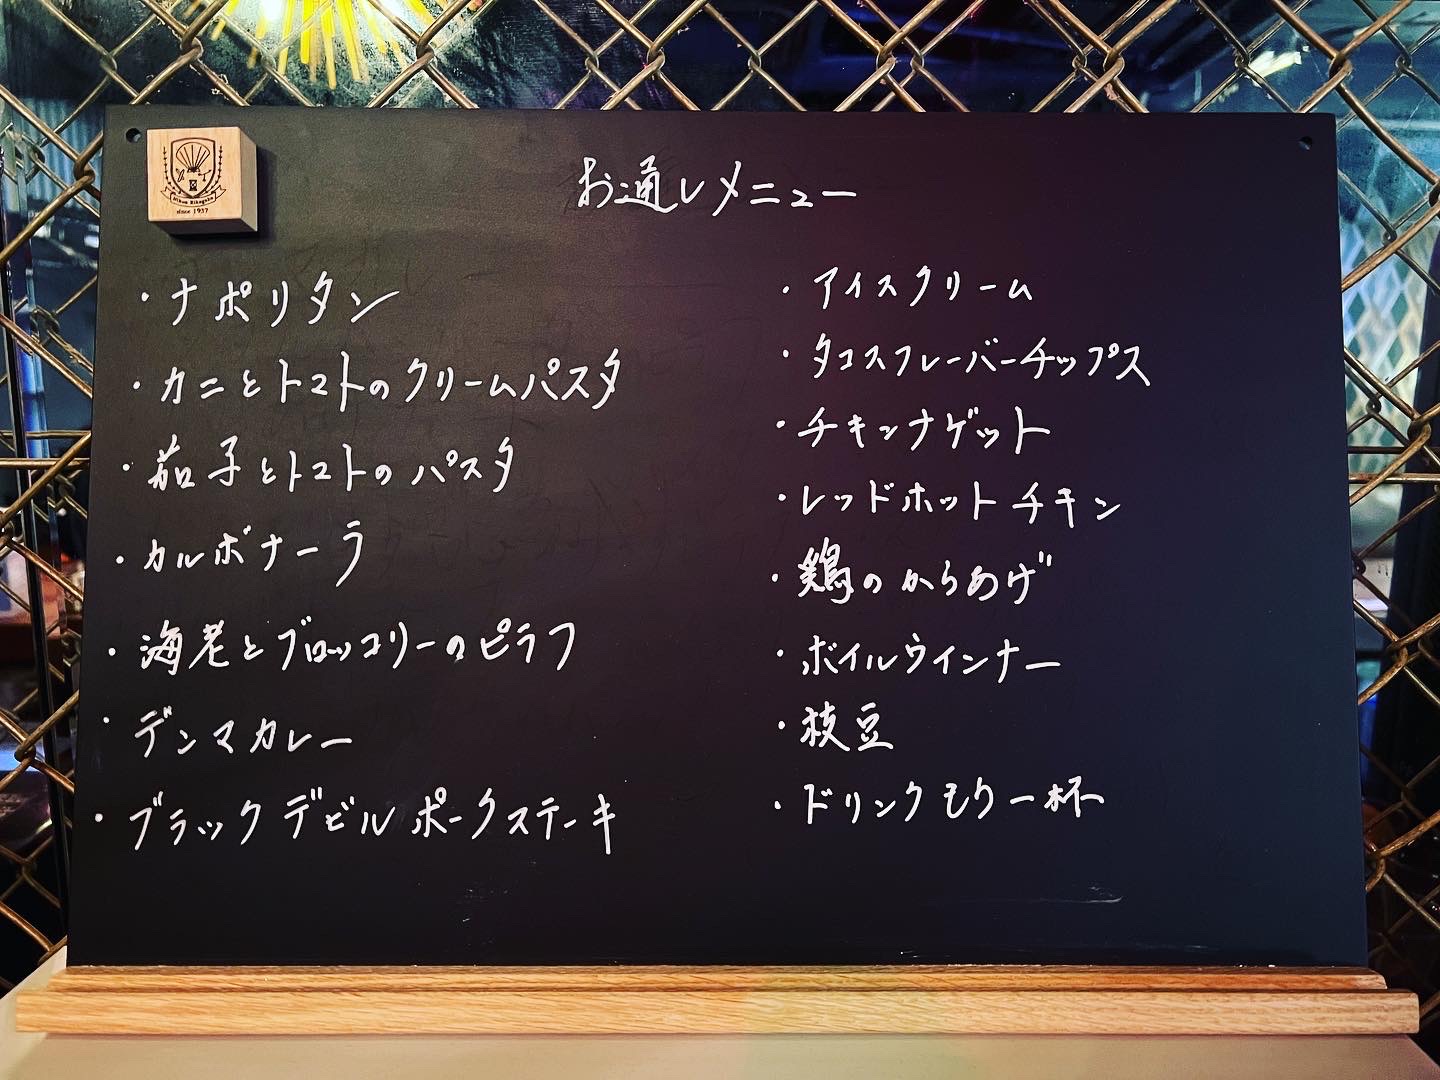 お通しメニュー
・ナポリタン
・カニとトマトのクリームパスタ
・茄子とトマトのパスタ
・カルボナーラ
・海老とブロッコリーのピラフ
・デンマカレー
・ブラックデビルポークステーキ
・アイスクリーム
・タコスフレーバーチップス
・チキンナゲット
・レッドホットチキン
・鶏のからあげ
・ボイルウインナー
・枝豆
・ドリンクもう一杯
since 1937